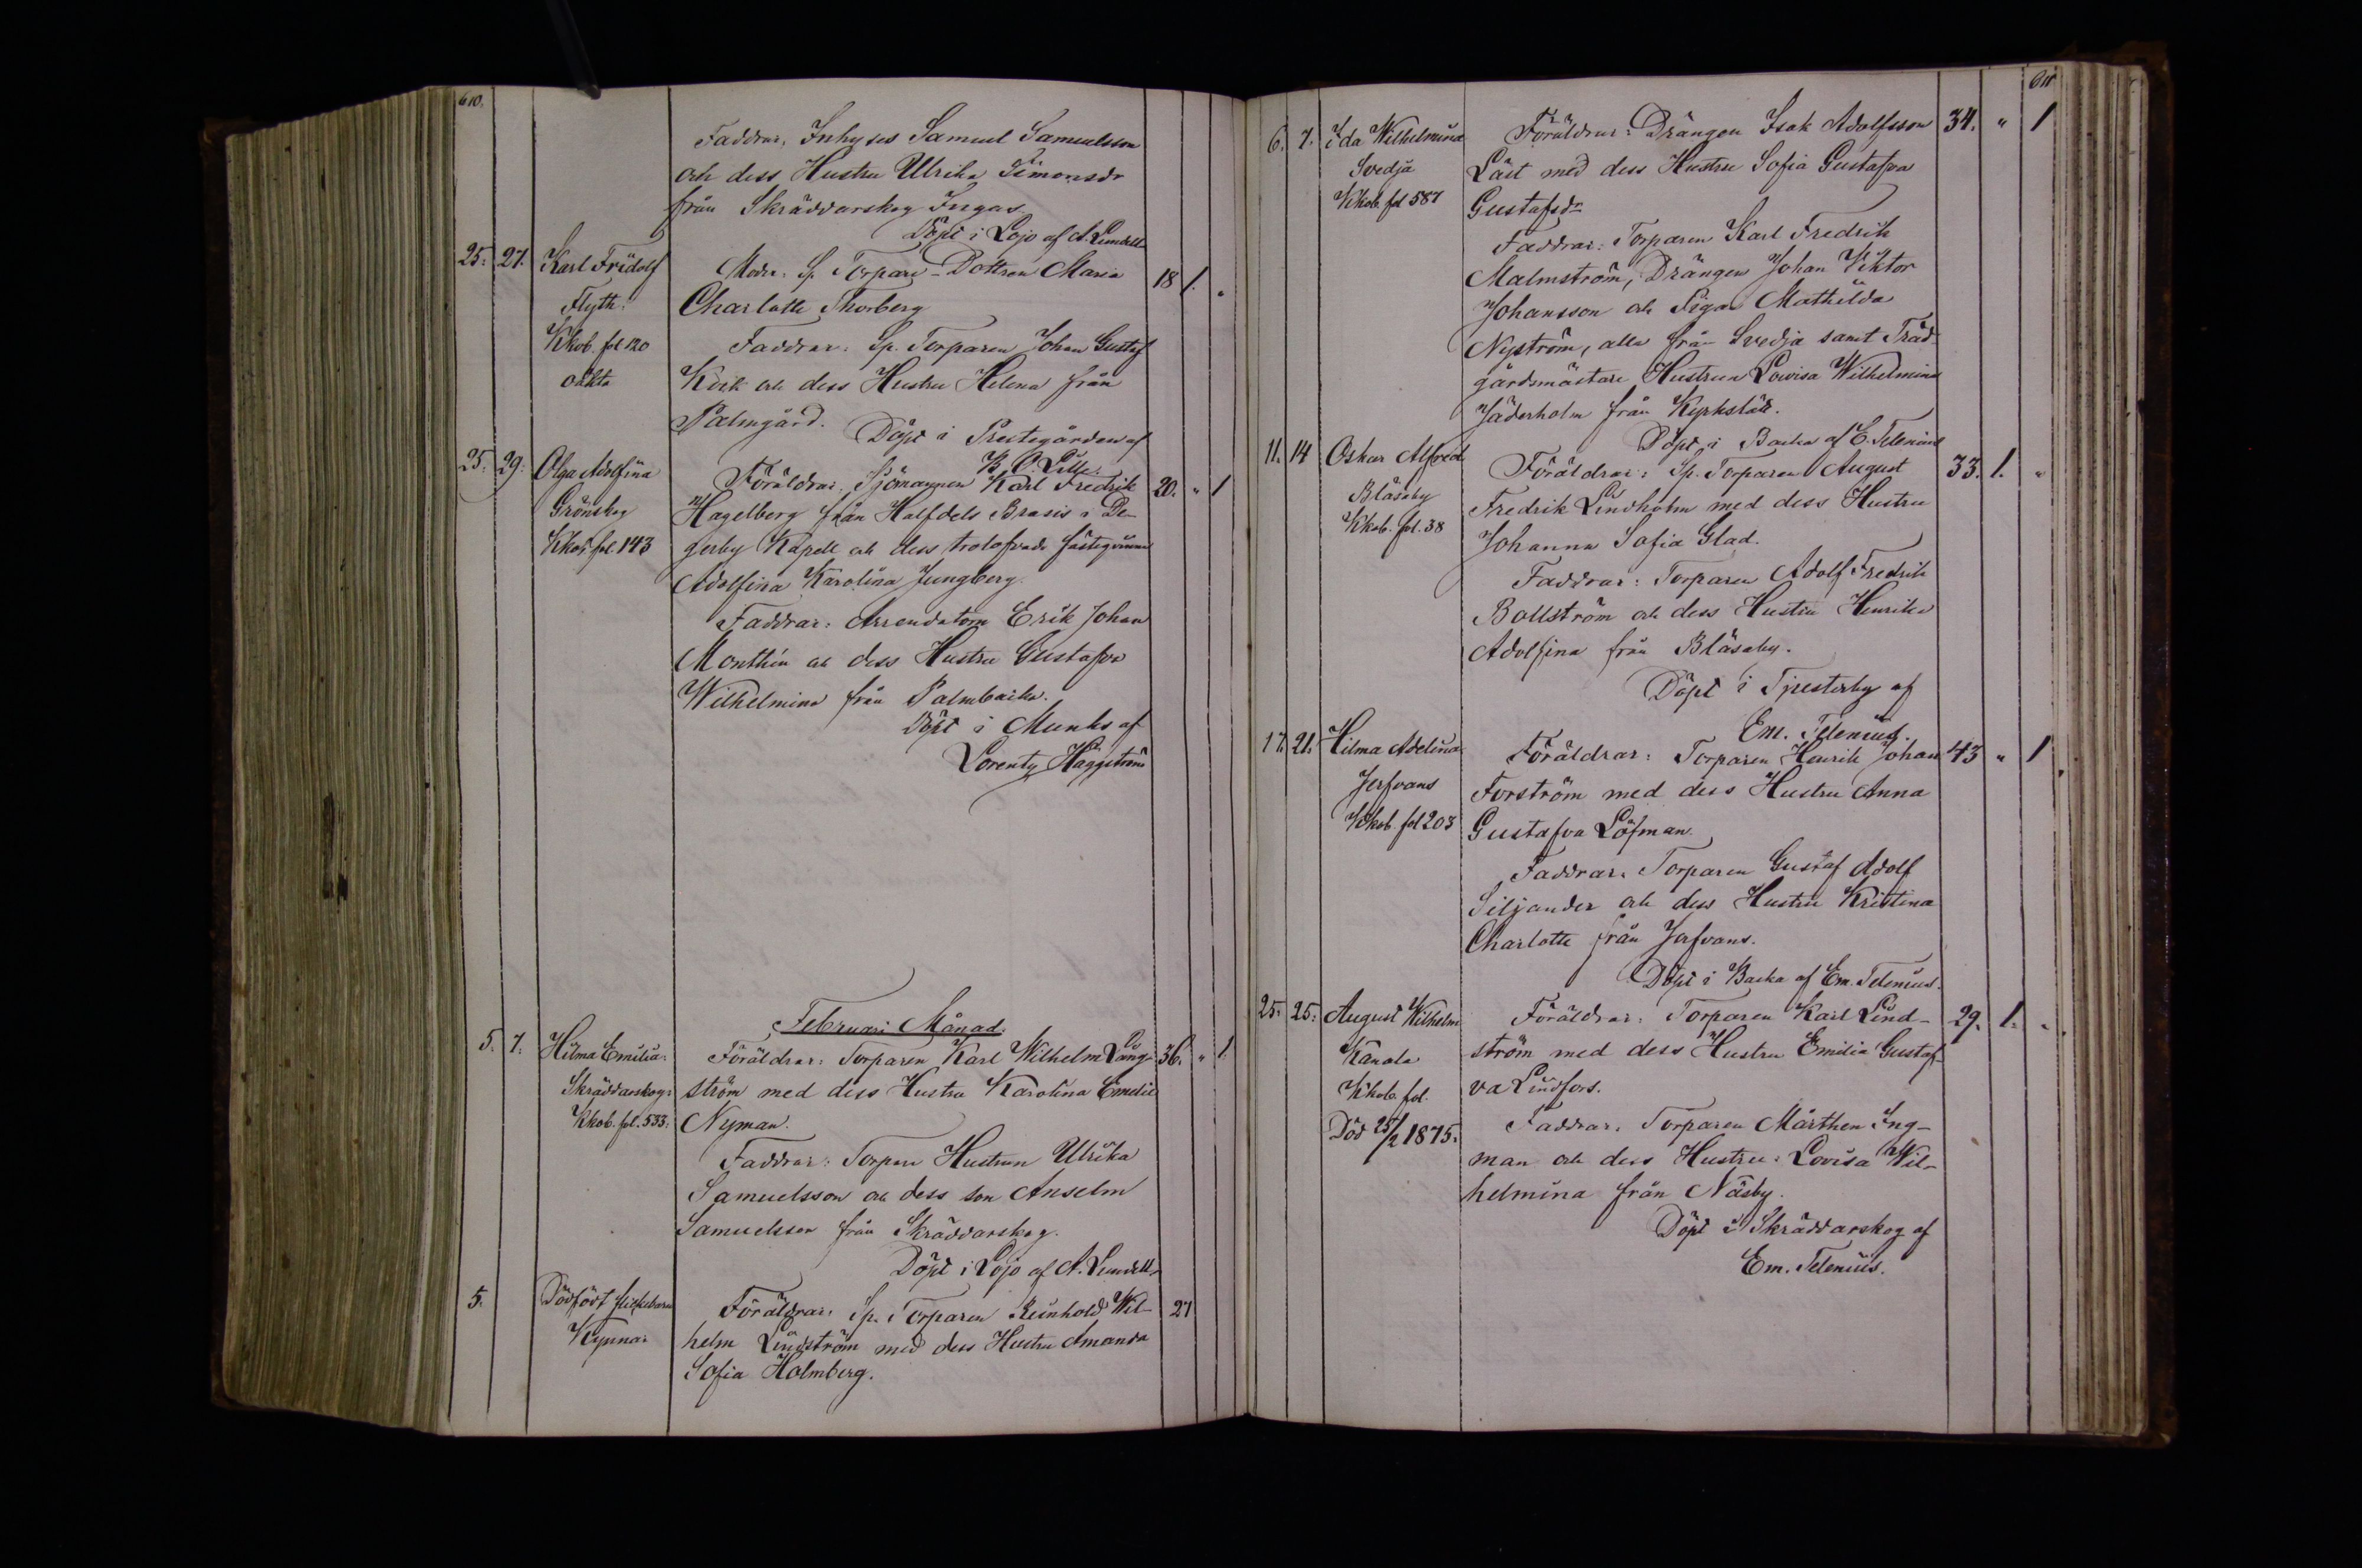 610.
Faddrar, Inhyses Samuel Samuelsson
och dess Hustru Ulrika Simonsdr
från Skräddarskog Ingas.
Döpt i Lojo af A. Lundell
25. 27. Karl Fridolf
Flyth.
Kkob. fol 120
oäkta
Modr. Sp. Torpare-Dottren Maria 18 1. "
Charlotta Thorberg
Faddrar: Sp. Torparen Johan Gustaf
Kvik och dess Hustru Helena från
Palmgård. Döpt i Prestegården af
25. 29. Olga Adolfina
Grönskog
Kkob. fol. 143
Föräldrar, Sjömannen Karl Fredrik 20. " 1
Hagelberg från Halfdels Brasis i De-
gerby Kapell och dess trolofvade fästeqvinna
Adolfina Karolina Jungberg.
Faddrar: Arrendatorn Erik Johan
Monthén och dess Hustru Gustafva
Wilhelmina från Palmbacka.
Döpt i Munks af
Lorentz Häggström
Februari Månad.
5. 7. Hilma Emilia.
Skräddarskog:
Kkob. fol. 533.
Föräldrar: Torparen Karl Wilhelm Lång- 36. " 1.
ström med dess Hustru Karolina Emelie
Nyman.
Faddrar: Torpare Hustrun Ulrika
Samuelsson och dess son Anselm
Samuelsson från Skräddarskog.
Döpt i Lojo af A. Lundell.
5. Dödfödt flickebarn
Kynnar
Föräldrar: Sp. Torparen Reinhold Wil- 27
helm Lindström med dess Hustru Amanda
Sofia Holmberg.
611
6. 7. Ida Wilhelmina
Svedja
Kkob. fol 587
Föräldrar: Drängen Isak Adolfsson 34. " 1
Läst med dess Hustru Sofia Gustafva
Gustafsdr
Faddrar: Torparen Karl Fredrik
Malmström, Drängen Johan Viktor
Johansson och Pigan Mathilda
Nyström, alla från Svedja samt Träd-
gårdsmästare Hustrun Lovisa Wilhelmina
Jäderholm från Kyrkslätt.
Döpt i Backa af E. Telenius
11. 14 Oskar Alfred
Blåsaby
Kkob. fol. 38
Föräldrar: Sp. Torparen August 33. 1. "
Fredrik Lindholm med dess Hustru
Johanna Sofia Glad.
Faddrar: Torparen Adolf Fredrik
Bollström och dess Hustru Henrika
Adolfina från Blåsaby.
Döpt i Tjusterby af
Em. Telenius.
17. 21. Hilma Adelina
Jerfvans
Kkob. fol 203
Föräldrar: Torparen Henrik Johan 43 " 1
Forström med dess Hustru Anna
Gustafva Löfman.
Faddrar: Torparen Gustaf Adolf
Siljander och dess Hustru Kristina
Charlotta från Jerfvans.
Döpt i Backa af Em. Telenius.
25. 25. August Wilhelm
Kanala
Kkob. fol.
Död 25/2 1875.
Föräldrar: Torparen Karl Lind- 29. 1. "
ström med dess Hustru Emilia Gustaf-
va Lindfors.
Faddrar: Torparen Mårthen Ing-
man och dess Hustru: Lovisa Wil-
helmina från Näsby.
Döpt i Skräddarskog af
Em. Telenius.